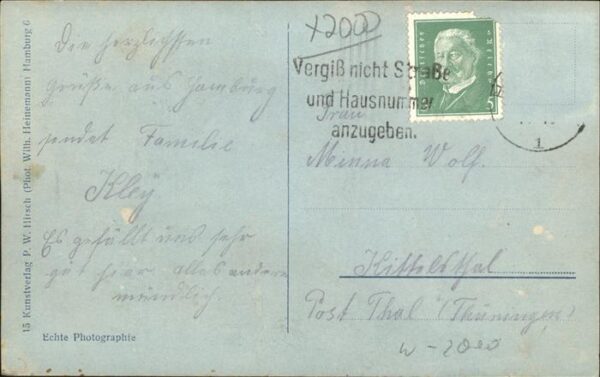 x2000
Vergiß nicht Straße
und Hausnummer
anzugeben.
Deutsches Reich
5
1
Die herzlichsten
Grüße aus Hamburg
sendet Familie
Kley.
Es gefällt uns sehr
gut hier alles andere
mündlich.
Frau
Minna Wolf.
Kittelsthal
Post Thal (Thüringen)
W-2000
Echte Photographie
15 Kunstverlag P. W. Hirsch (Phot. Wilh. Heinemann) Hamburg 6